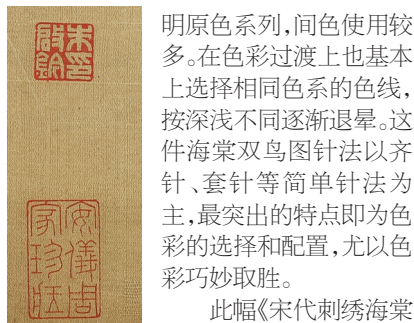 朱印
啟鈐
安儀周
家珍藏
明原色系列，间色使用较
多。在色彩过渡上也基本
上选择相同色系的色线，
按深浅不同逐渐退晕。这
件海棠双鸟图针法以齐
针、套针等简单针法为
主，最突出的特点即为色
彩的选择和配置，尤以色
彩巧妙取胜。
此幅《宋代刺绣海棠